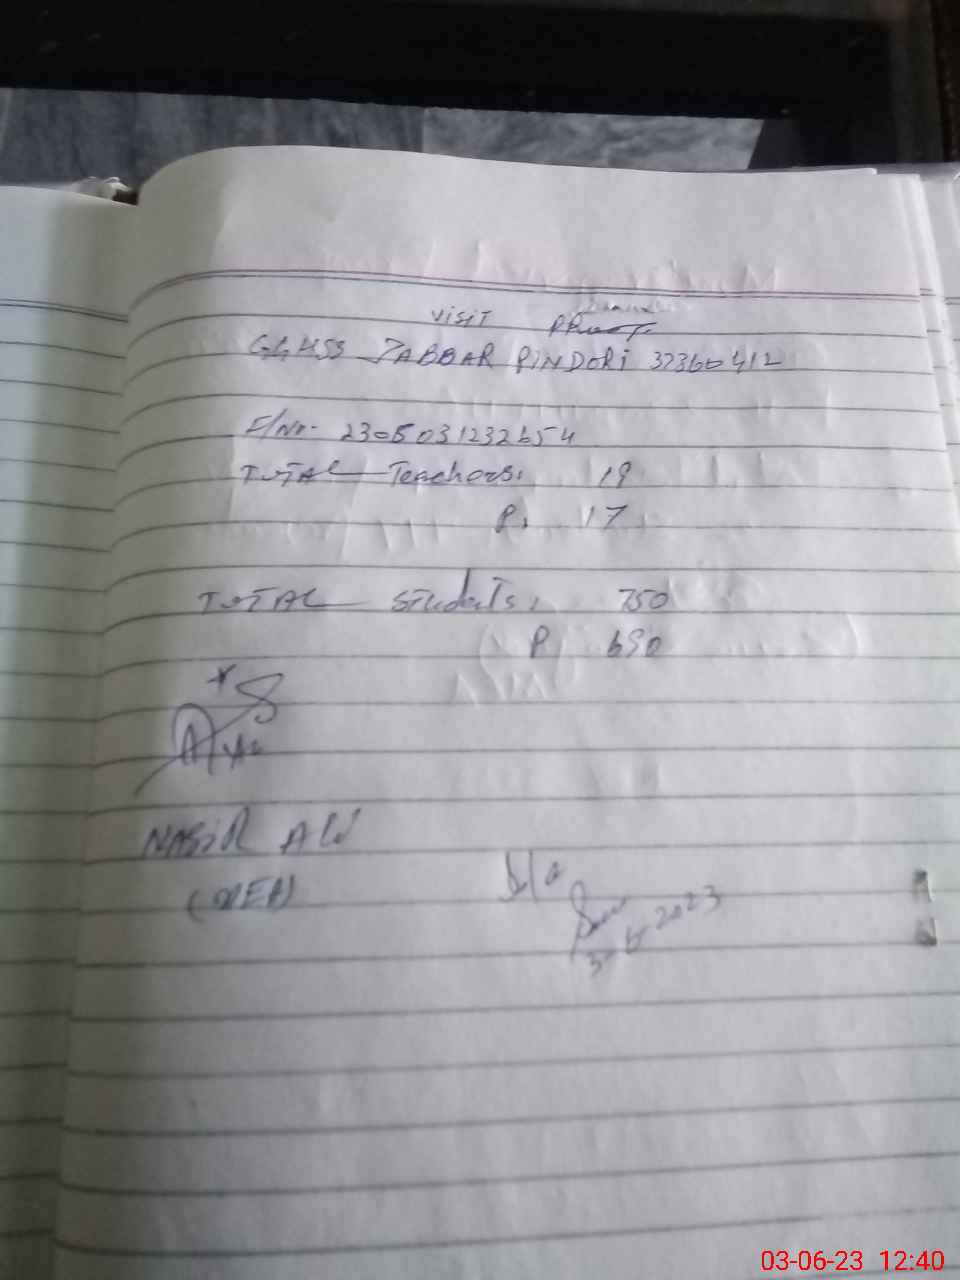 VISIT PROOF
GGHSS JABBAR PINDORI 37360412
F/No- 2305031232654
TOTAL Teachers: 19
P: 17
TOTAL Students: 750
P 690
NASIR ALI
(MEA)
2023
03-06-23 12:40